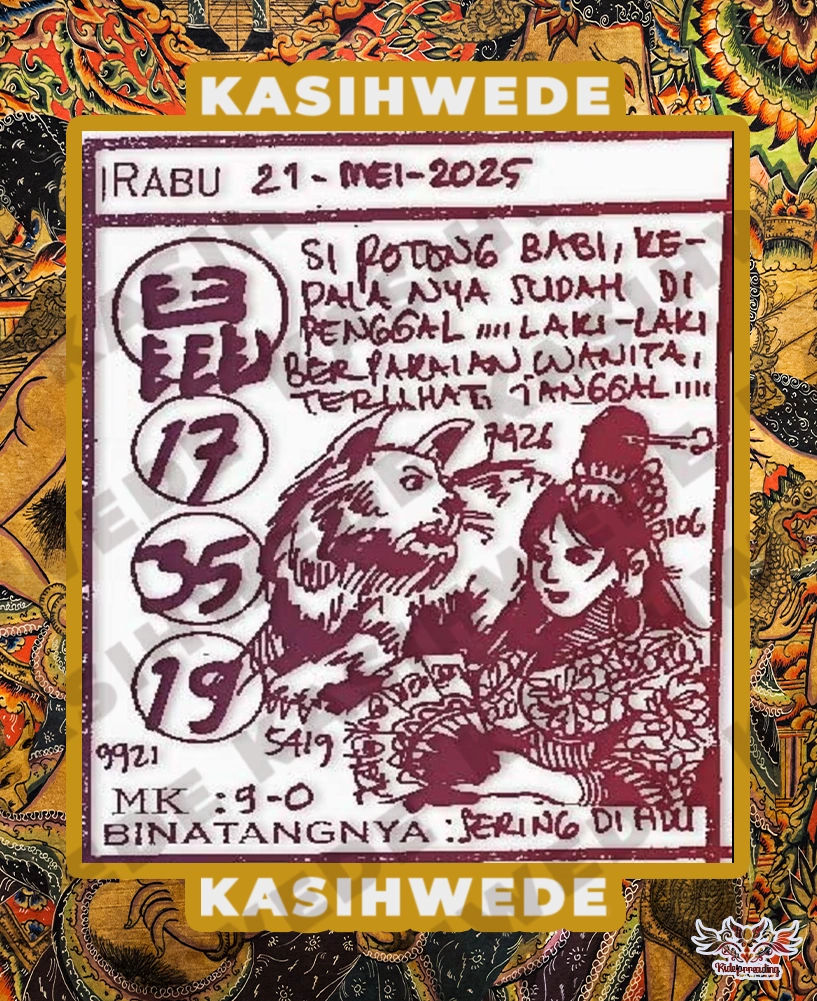 KASIHWEDE
RABU 21-MEI-2025
SI POTONG BABI, KE-
PALA NYA SUDAH DI
PENGGAL ,,,, LAKI-LAKI
BERPAKAIAN WANITA,
TERLIHAT, TANGGAL ,,,,
17
7426
35
3106
19
5419
9921
MK : 9-0
BINATANGNYA : SERING DI ADU
KASIHWEDE